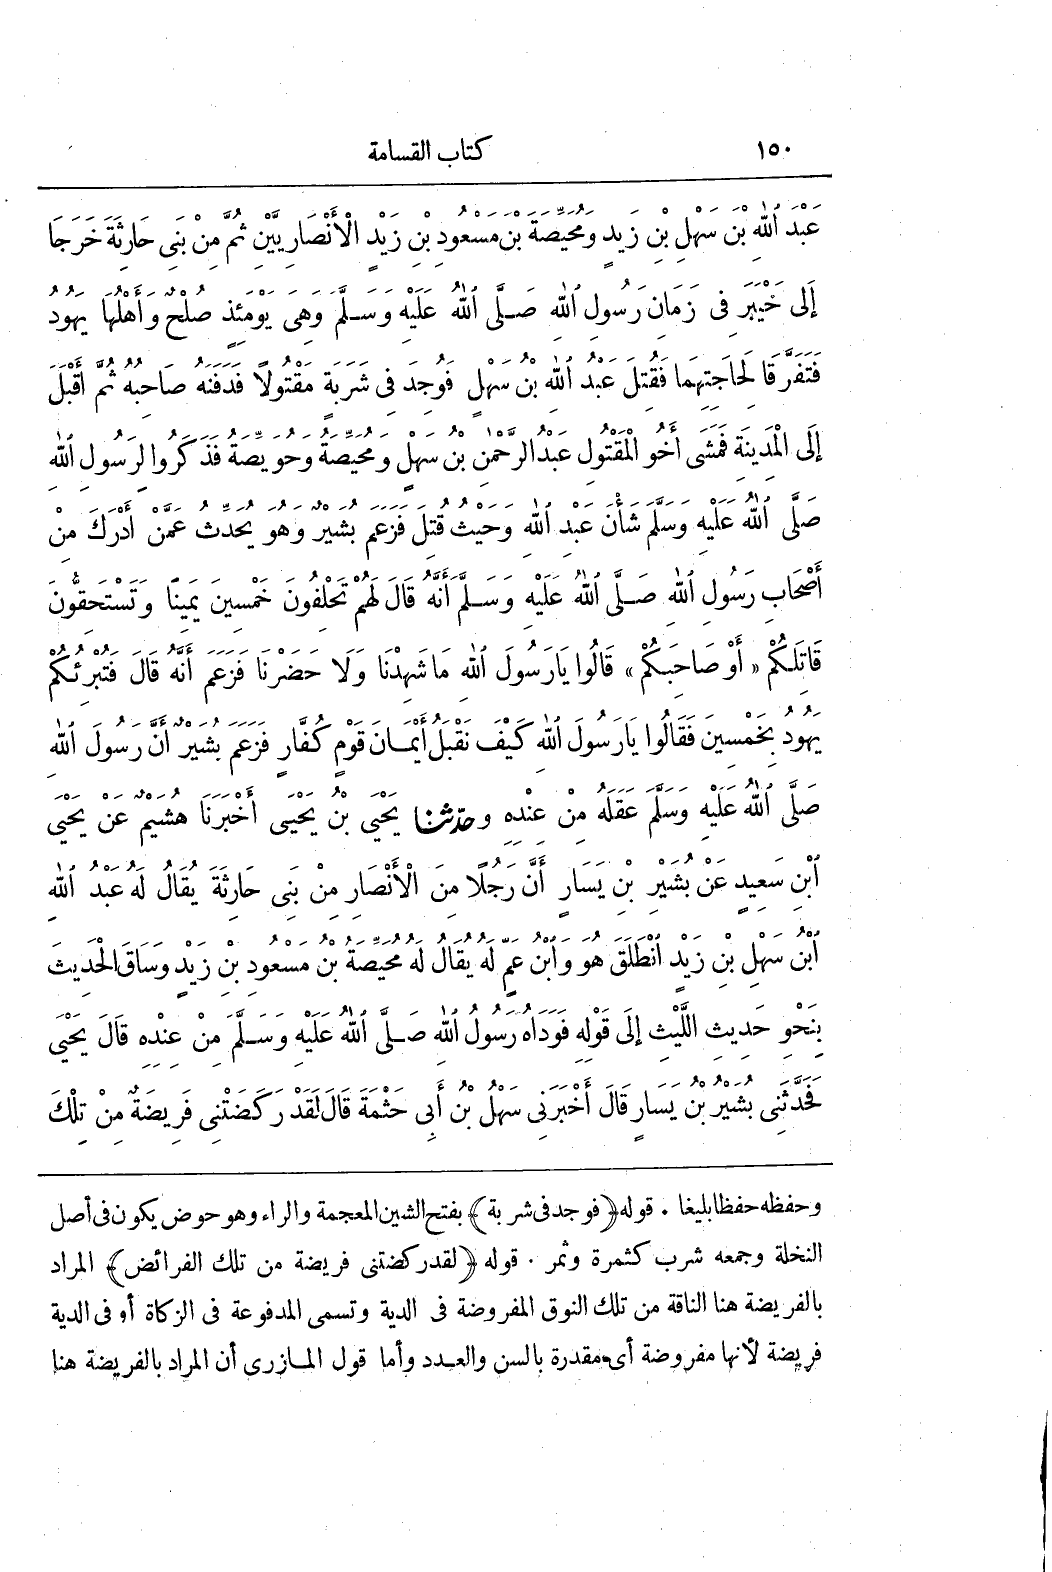 ١٥٠ كتاب القسامة
عَبْدَ اللهِ بْنَ سَهْلِ بْنِ زَيْدٍ وَمُحَيِّصَةَ بْنَ مَسْعُودِ بْنِ زَيْدٍ الْأَنْصَارِيَّيْنِ ثُمَّ مِنْ بَنِى حَارِثَةَ خَرَجَا
إِلَى خَيْبَرَ فِى زَمَانِ رَسُولِ اللهِ صَلَّى اللهُ عَلَيْهِ وَسَلَّمَ وَهِىَ يَوْمَئِذٍ صُلْحٌ وَأَهْلُهَا يَهُودُ
فَتَفَرَّقَا لِحَاجَتِهِمَا فَقُتِلَ عَبْدُ اللهِ بْنُ سَهْلٍ فَوُجِدَ فِى شَرَبَةٍ مَقْتُولًا فَدَفَنَهُ صَاحِبُهُ ثُمَّ أَقْبَلَ
إِلَى الْمَدِينَةِ فَمَشَى أَخُو الْمَقْتُولِ عَبْدُ الرَّحْمٰنِ بْنُ سَهْلٍ وَمُحَيِّصَةُ وَحُوَيِّصَةُ فَذَكَرُوا لِرَسُولِ اللهِ
صَلَّى اللهُ عَلَيْهِ وَسَلَّمَ شَأْنَ عَبْدِ اللهِ وَحَيْثُ قُتِلَ فَزَعَمَ بُشَيْرٌ وَهُوَ يُحَدِّثُ عَمَّنْ أَدْرَكَ مِنْ
أَصْحَابِ رَسُولِ اللهِ صَلَّى اللهُ عَلَيْهِ وَسَلَّمَ أَنَّهُ قَالَ لَهُمْ تَحْلِفُونَ خَمْسِينَ يَمِينًا وَتَسْتَحِقُّونَ
قَاتِلَكُمْ «أَوْ صَاحِبَكُمْ» قَالُوا يَا رَسُولَ اللهِ مَا شَهِدْنَا وَلَا حَضَرْنَا فَزَعَمَ أَنَّهُ قَالَ فَتُبْرِئُكُمْ
يَهُودُ بِخَمْسِينَ فَقَالُوا يَا رَسُولَ اللهِ كَيْفَ نَقْبَلُ أَيْمَانَ قَوْمٍ كُفَّارٍ فَزَعَمَ بُشَيْرٌ أَنَّ رَسُولَ اللهِ
صَلَّى اللهُ عَلَيْهِ وَسَلَّمَ عَقَلَهُ مِنْ عِنْدِهِ وحدثنا يَحْيَى بْنُ يَحْيَى أَخْبَرَنَا هُشَيْمٌ عَنْ يَحْيَى
ابْنِ سَعِيدٍ عَنْ بُشَيْرِ بْنِ يَسَارٍ أَنَّ رَجُلًا مِنَ الْأَنْصَارِ مِنْ بَنِى حَارِثَةَ يُقَالُ لَهُ عَبْدُ اللهِ
ابْنُ سَهْلِ بْنِ زَيْدٍ انْطَلَقَ هُوَ وَابْنُ عَمٍّ لَهُ يُقَالُ لَهُ مُحَيِّصَةُ بْنُ مَسْعُودِ بْنِ زَيْدٍ وَسَاقَ الْحَدِيثَ
بِنَحْوِ حَدِيثِ اللَّيْثِ إِلَى قَوْلِهِ فَوَدَاهُ رَسُولُ اللهِ صَلَّى اللهُ عَلَيْهِ وَسَلَّمَ مِنْ عِنْدِهِ قَالَ يَحْيَى
فَحَدَّثَنِى بُشَيْرُ بْنُ يَسَارٍ قَالَ أَخْبَرَنِى سَهْلُ بْنُ أَبِى حَثْمَةَ قَالَ لَقَدْ رَكَضَتْنِى فَرِيضَةٌ مِنْ تِلْكَ
وحفظه حفظا بليغا . قوله ﴿فوجد فى شربة﴾ بفتح الشين المعجمة والراء وهو حوض يكون فى أصل
النخلة وجمعه شرب كثمرة وثمر . قوله ﴿لقد ركضتنى فريضة من تلك الفرائض﴾ المراد
بالفريضة هنا الناقة من تلك النوق المفروضة فى الدية وتسمى المدفوعة فى الزكاة أو فى الدية
فريضة لأنها مفروضة أى مقدرة بالسن والعدد وأما قول المازرى أن المراد بالفريضة هنا